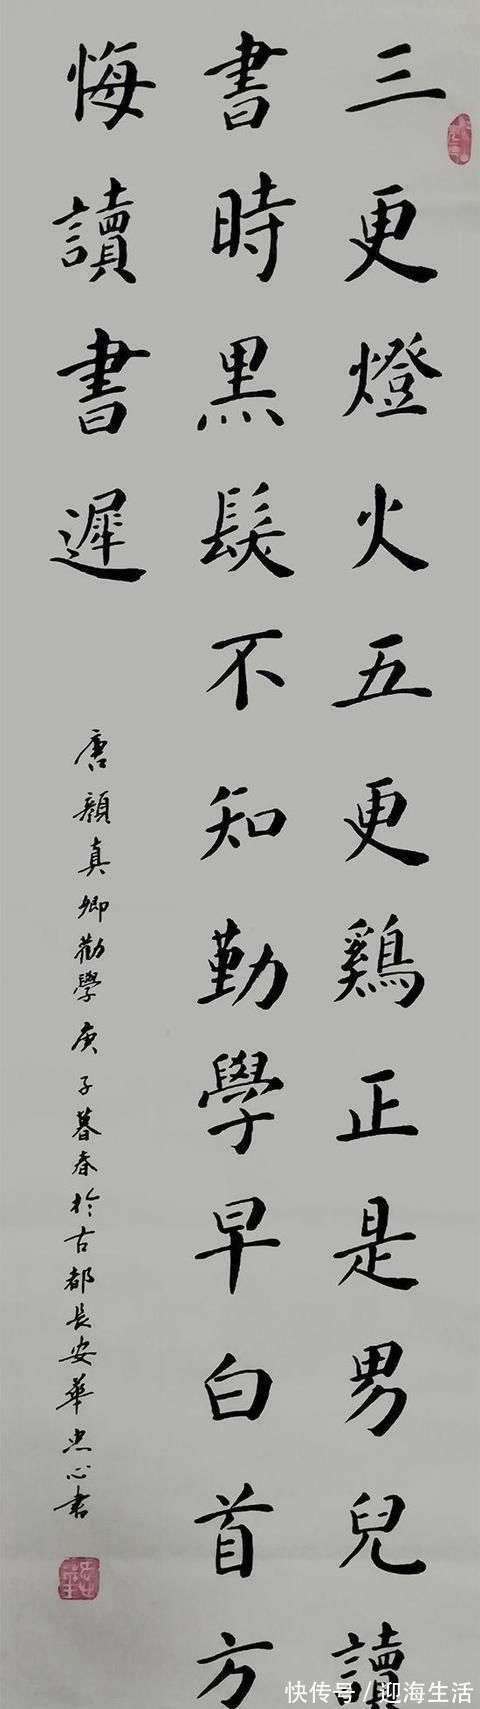 三更燈火五更鷄正是男兒讀
書時黑髮不知勤學早白首方
悔讀書遲
唐顏真卿勸學庚子暮春於古都長安華忠心書
快传号/迎海生活